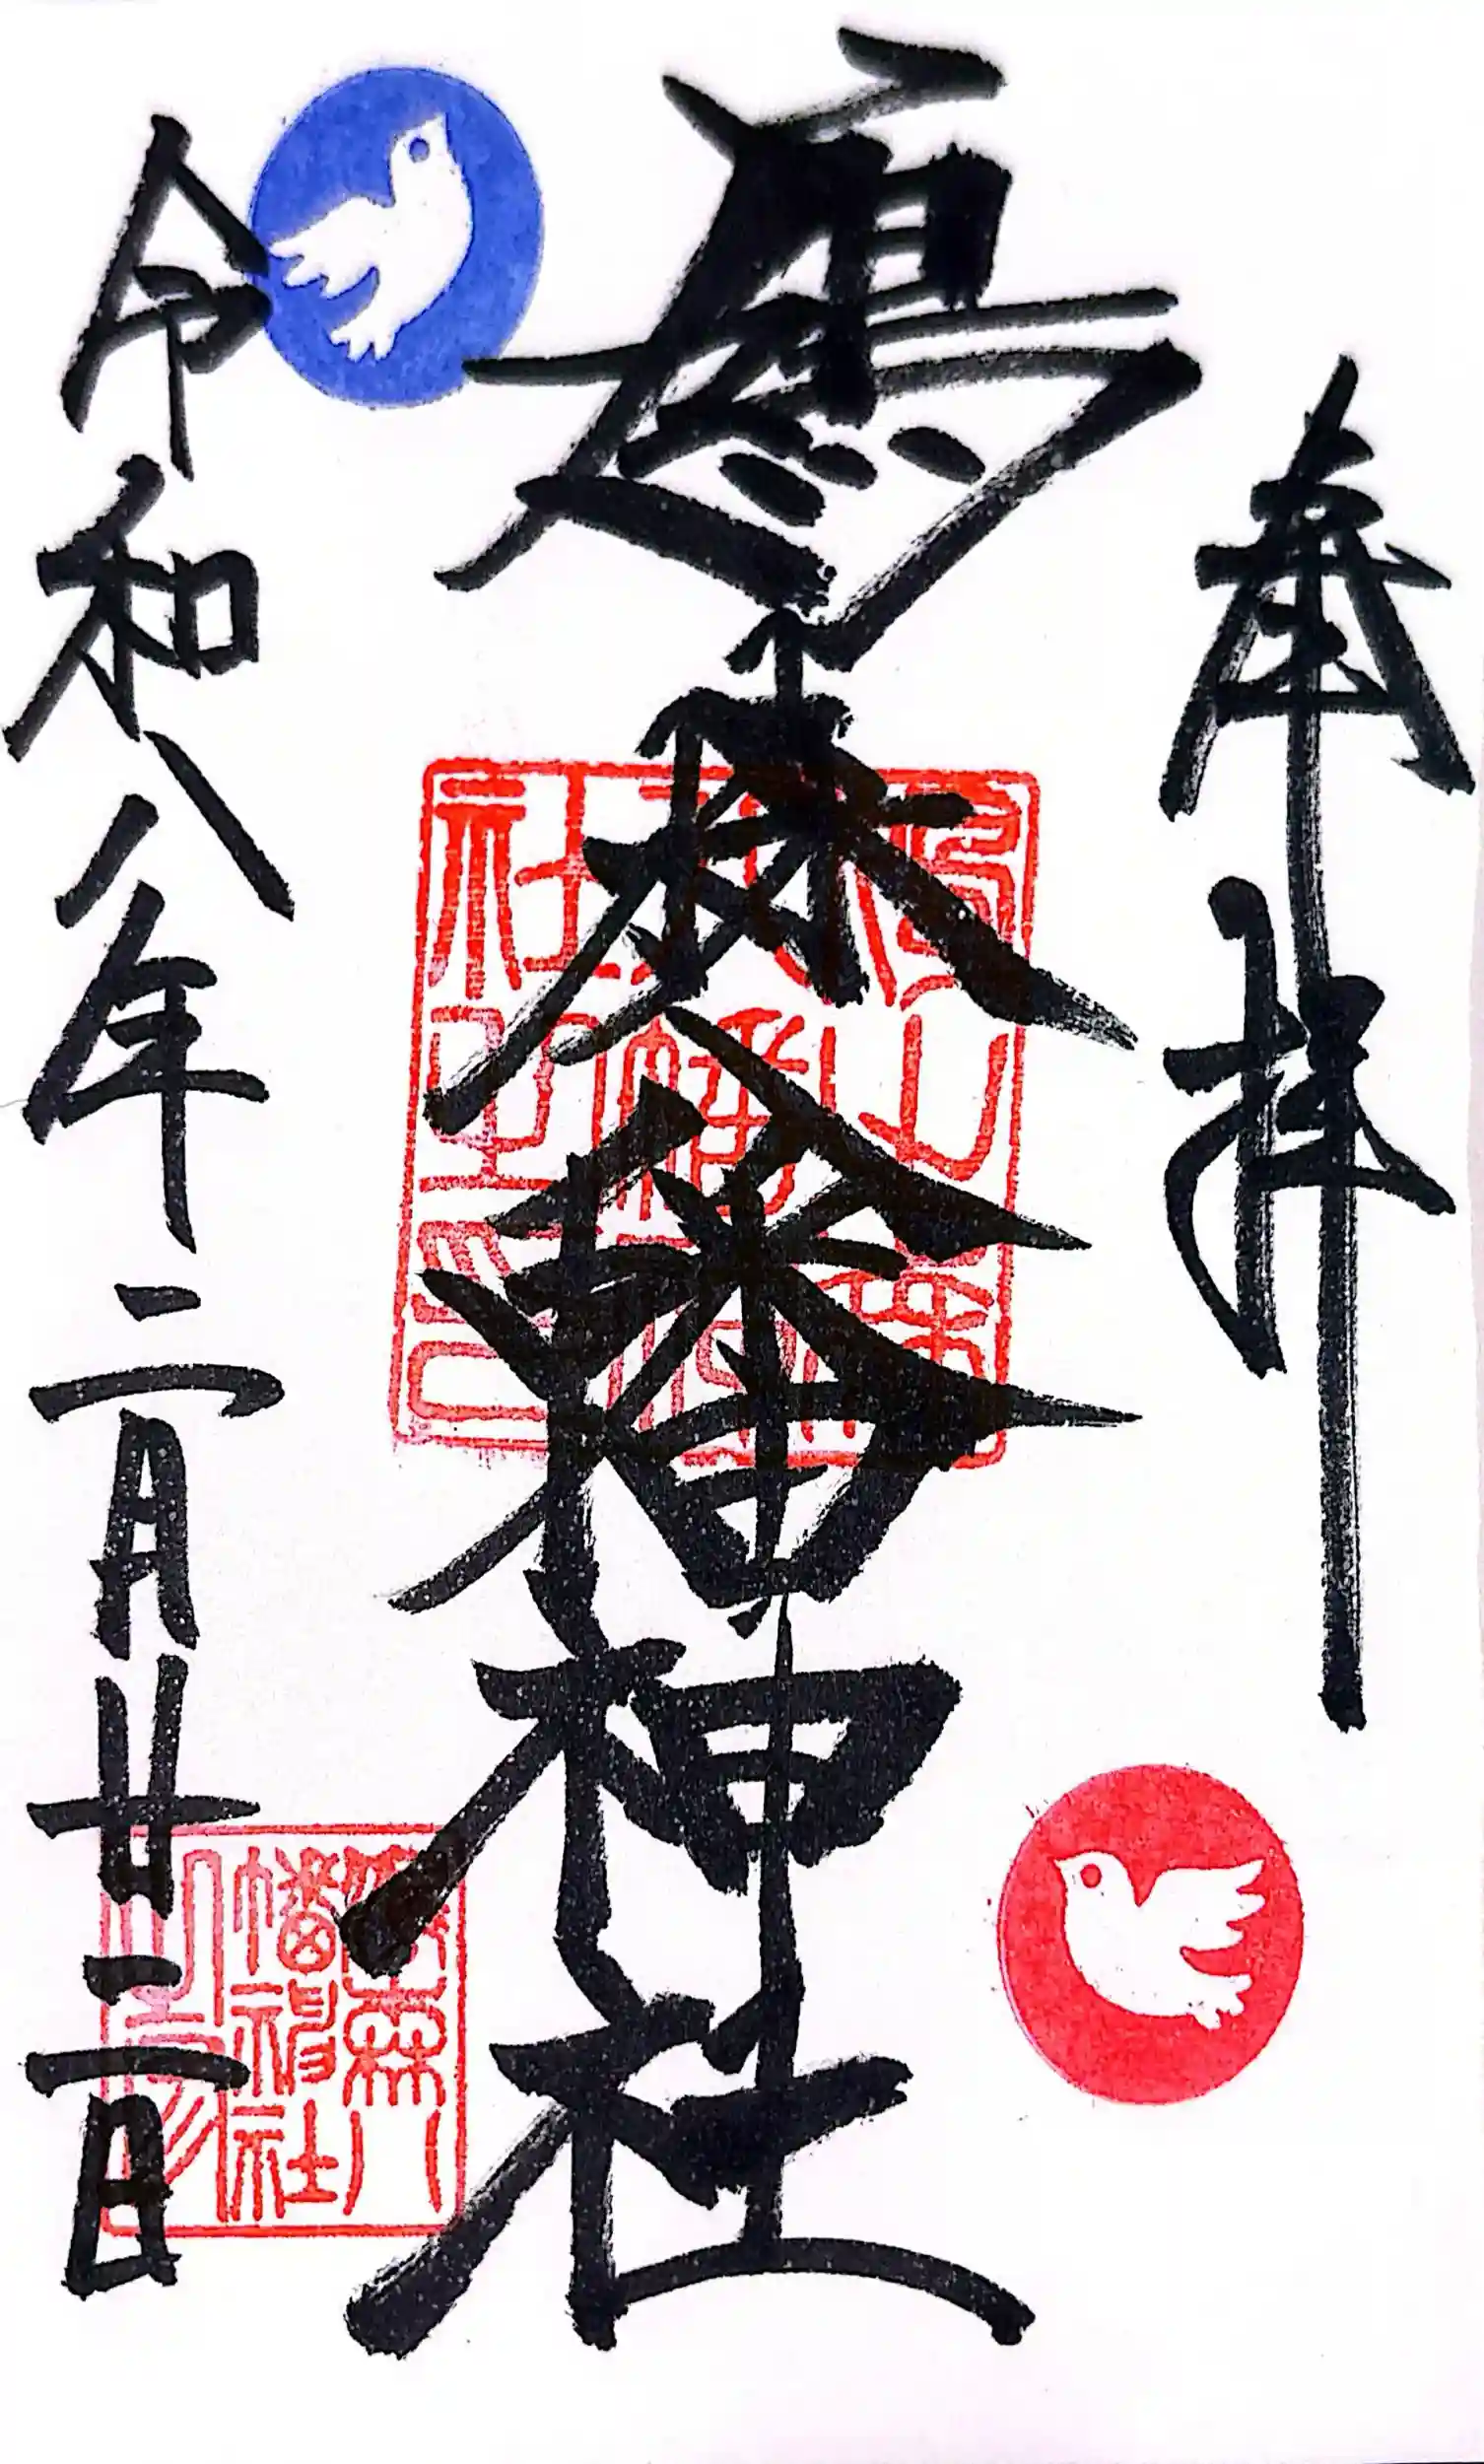 奉拝
鳩森八幡神社
令和八年二月廿二日
鳩森八
幡神社